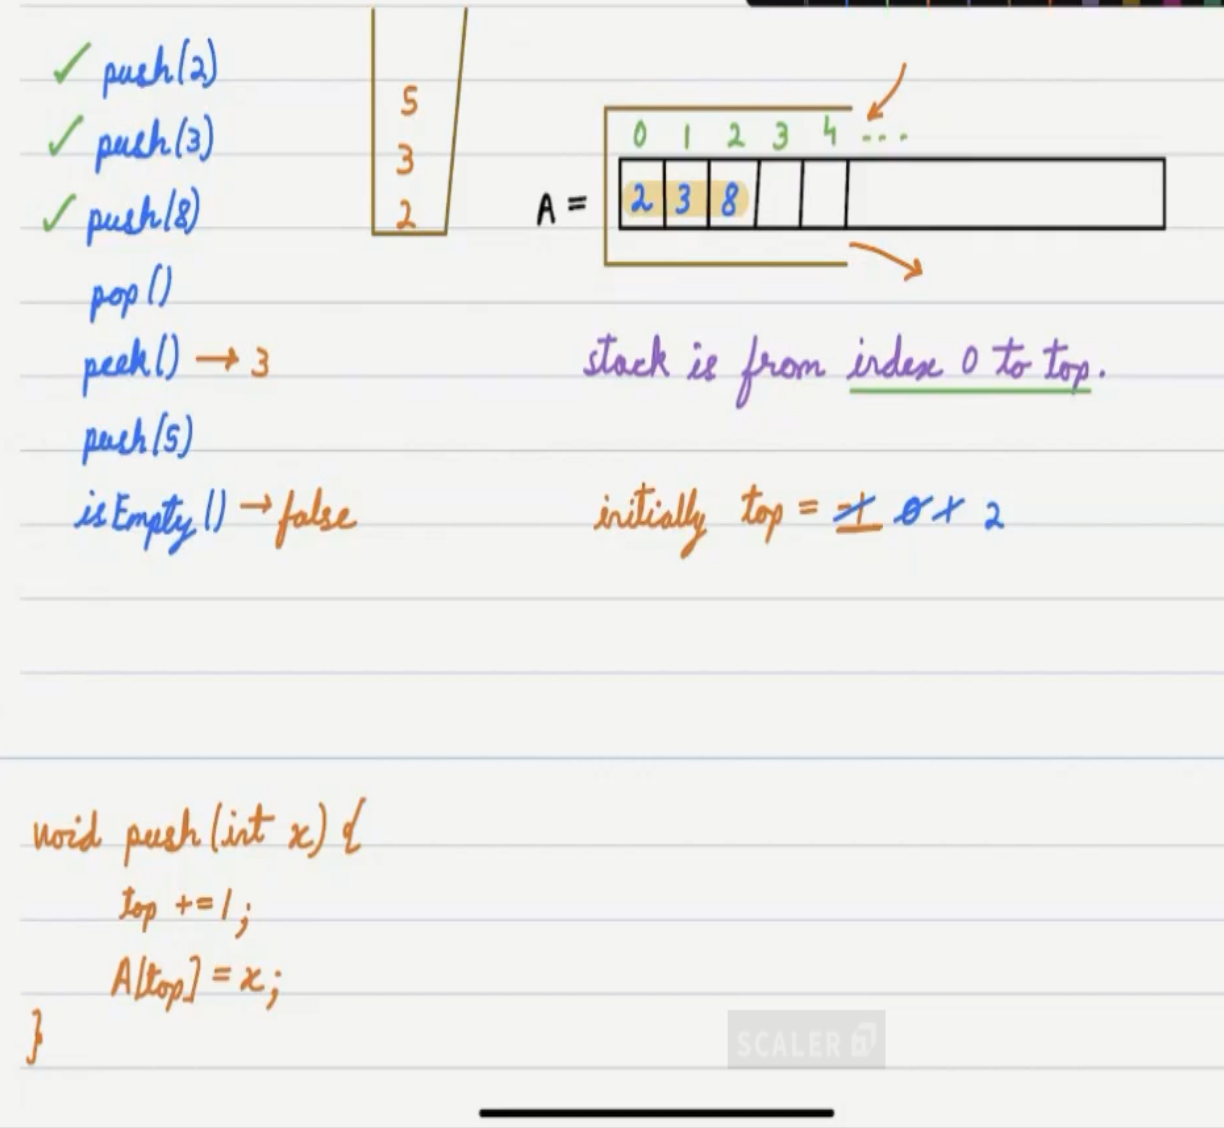 ✓ push(2)
✓ push(3)
✓ push(8)
pop()
peek() → 3
push(5)
isEmpty() → false
5
3
2
0 1 2 3 4 ...
A = 2 3 8
stack is from index 0 to top.
initially top = -1 0 1 2
void push(int x) {
top += 1;
A[top] = x;
}
SCALER